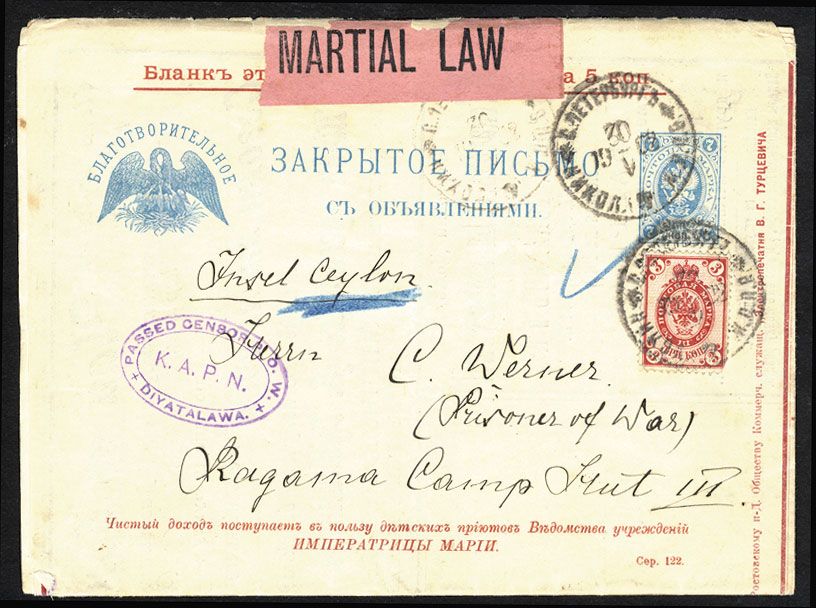 MARTIAL LAW
Бланкъ эт а 5 коп.
БЛАГОТВОРИТЕЛЬНОЕ
ЗАКРЫТОЕ ПИСЬМО
СЪ ОБЪЯВЛЕНІЯМИ.
7 7
ПОЧТОВАЯ МАРКА
С.ПЕТЕРБУРГЪ
30
V
НИКОЛ
Insel Ceylon.
3 3
3 3
PASSED CENSOR P.O.W.
K. A. P. N.
+ DIYATALAWA. +
Herrn
C. Werner
(Prisoner of War)
Ragama Camp Hut III.
Чистый доходъ поступаетъ въ пользу дѣтскихъ пріютовъ Вѣдомства учрежденій
ИМПЕРАТРИЦЫ МАРІИ.
Сер. 122.
Ростовскому н-Д. Обществу Коммерч. служащ. Электропечатня В. Г. ТУРЦЕВИЧА